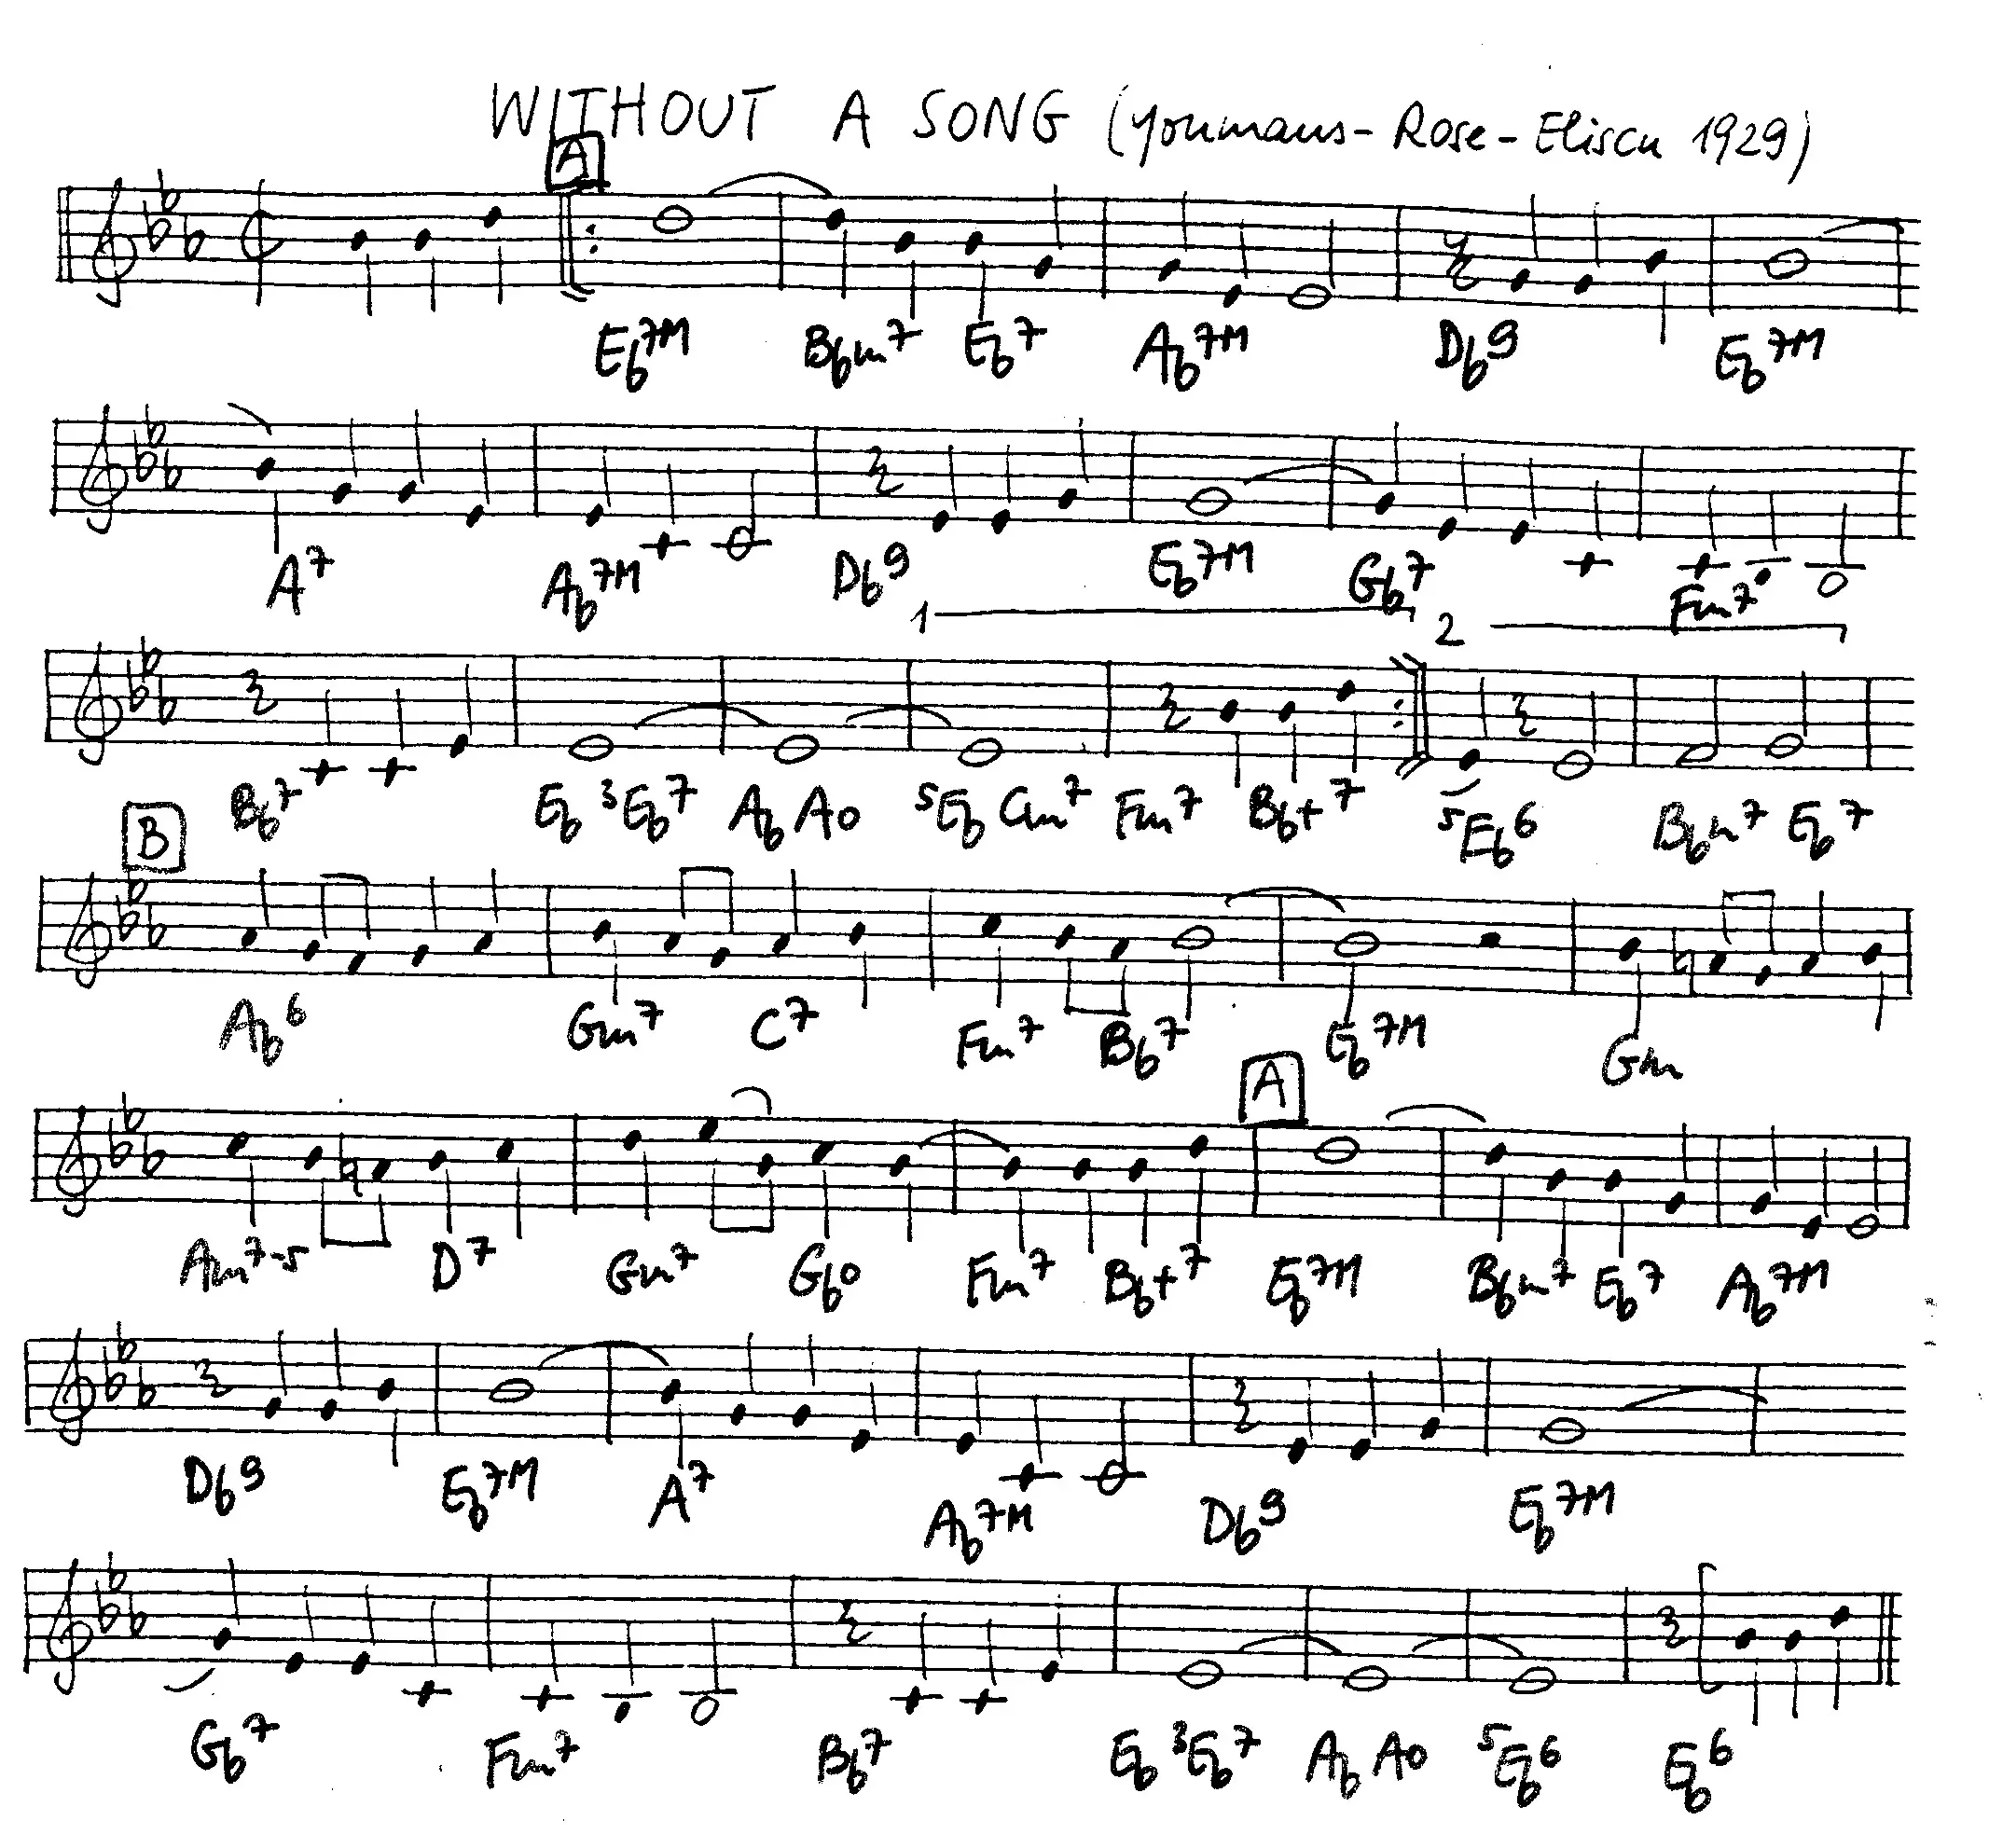 WITHOUT A SONG (Youmans-Rose-Eliscu 1929)
A
Eb7M Bbm7 Eb7 Ab7M Db9 Eb7M
A7 Ab7M Db9 Eb7M Gb7 Fm7
1 2
Bb7 Eb 3Eb7 Ab Ao 5Eb Cm7 Fm7 Bb+7 5Eb6 Bbm7 Eb7
B
Ab6 Gm7 C7 Fm7 Bb7 Eb7M Gm
A
Am7-5 D7 Gm7 Gbo Fm7 Bb+7 Eb7M Bbm7 Eb7 Ab7M
Db9 Eb7M A7 Ab7M Db9 Eb7M
Gb7 Fm7 Bb7 Eb 3Eb7 Ab Ao 5Eb6 Eb6